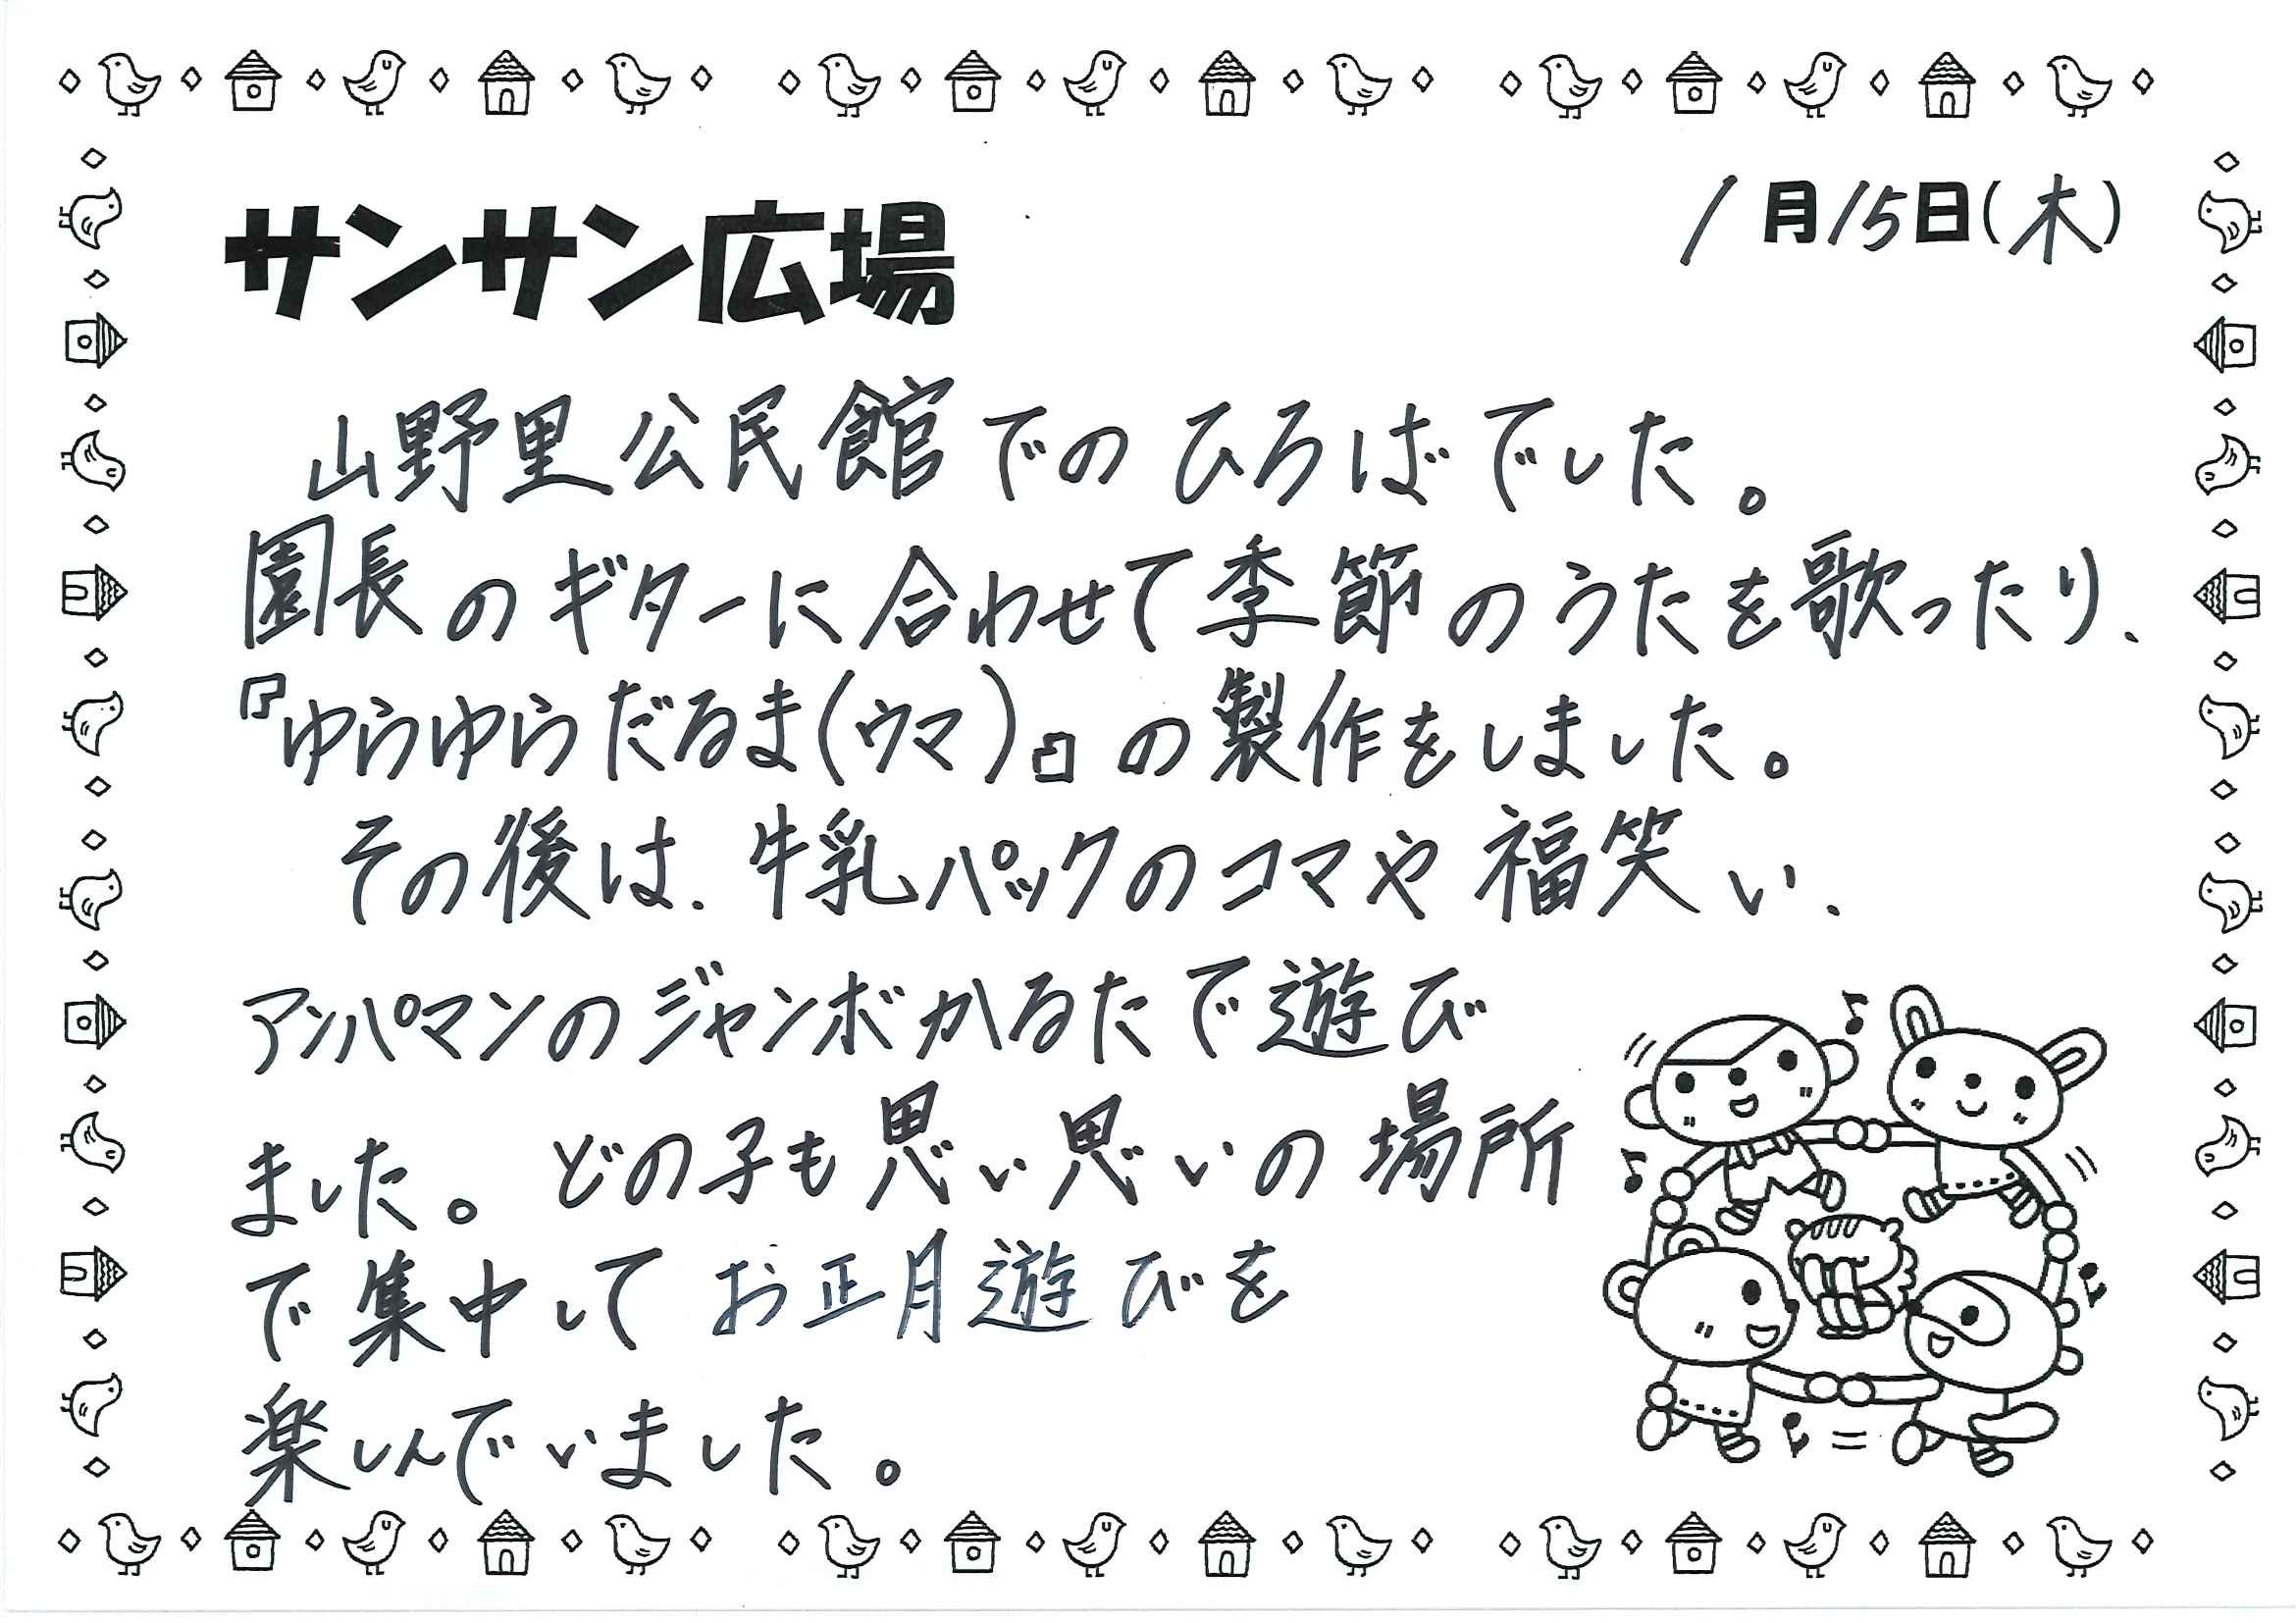 サンサン広場
1月15日(木)
山野里公民館でのひろばでした。
園長のギターに合わせて季節のうたを歌ったり、
『ゆらゆらだるま(ウマ)』の製作をしました。
その後は、牛乳パックのコマや福笑い、
アンパマンのジャンボかるたで遊び
ました。どの子も思い思いの場所
で集中してお正月遊びを
楽しんでいました。